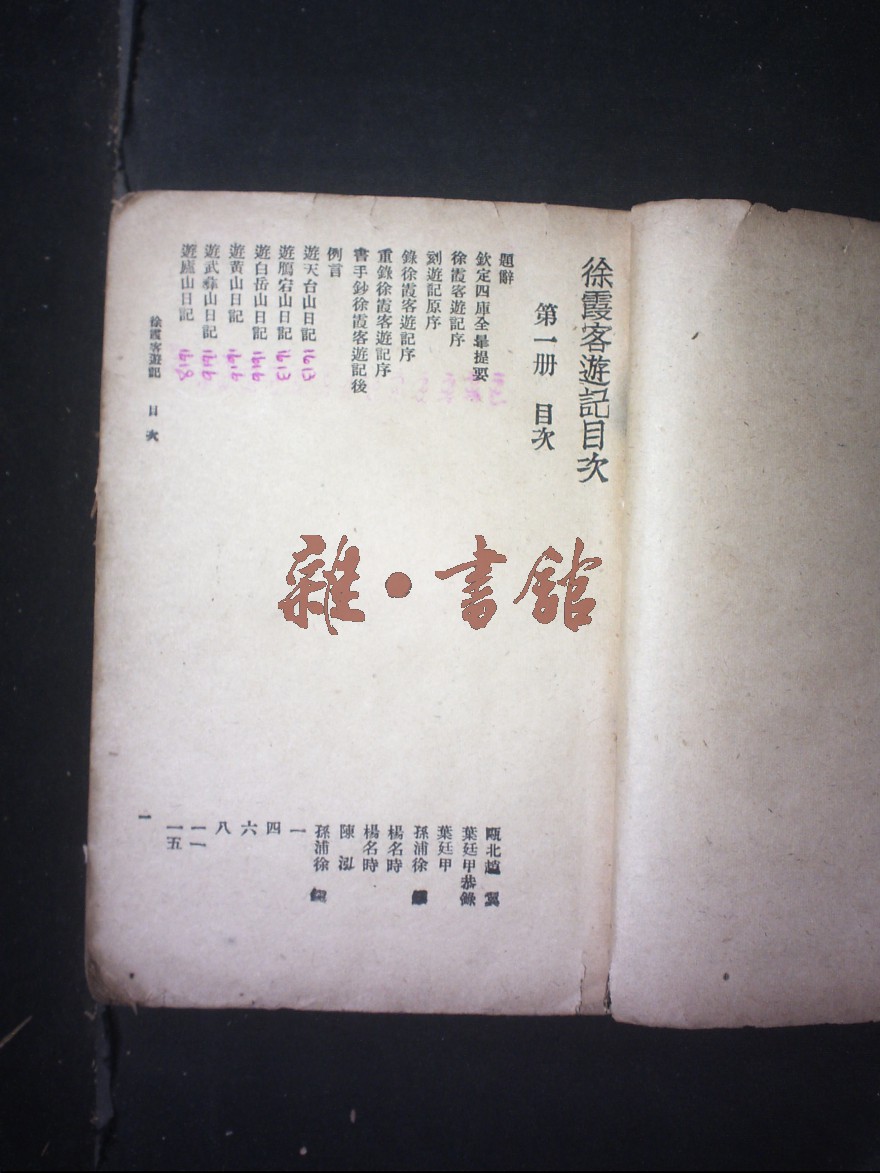 徐霞客遊記目次
第一册 目次
題辭 甌北趙 翼
欽定四庫全書提要 葉廷甲恭錄
徐霞客遊記序 葉廷甲
刻遊記原序 孫浦徐
錄徐霞客遊記序 楊名時
重錄徐霞客遊記序 楊名時
書手鈔徐霞客遊記後 陳 泓
例言 孫浦徐
遊天台山日記 1613 一
遊鴈宕山日記 1613 四
遊白岳山日記 1616 六
遊黃山日記 1616 八
遊武彝山日記 1616 一一
遊廬山日記 1618 一五
徐霞客遊記 目次 一
雜•書館